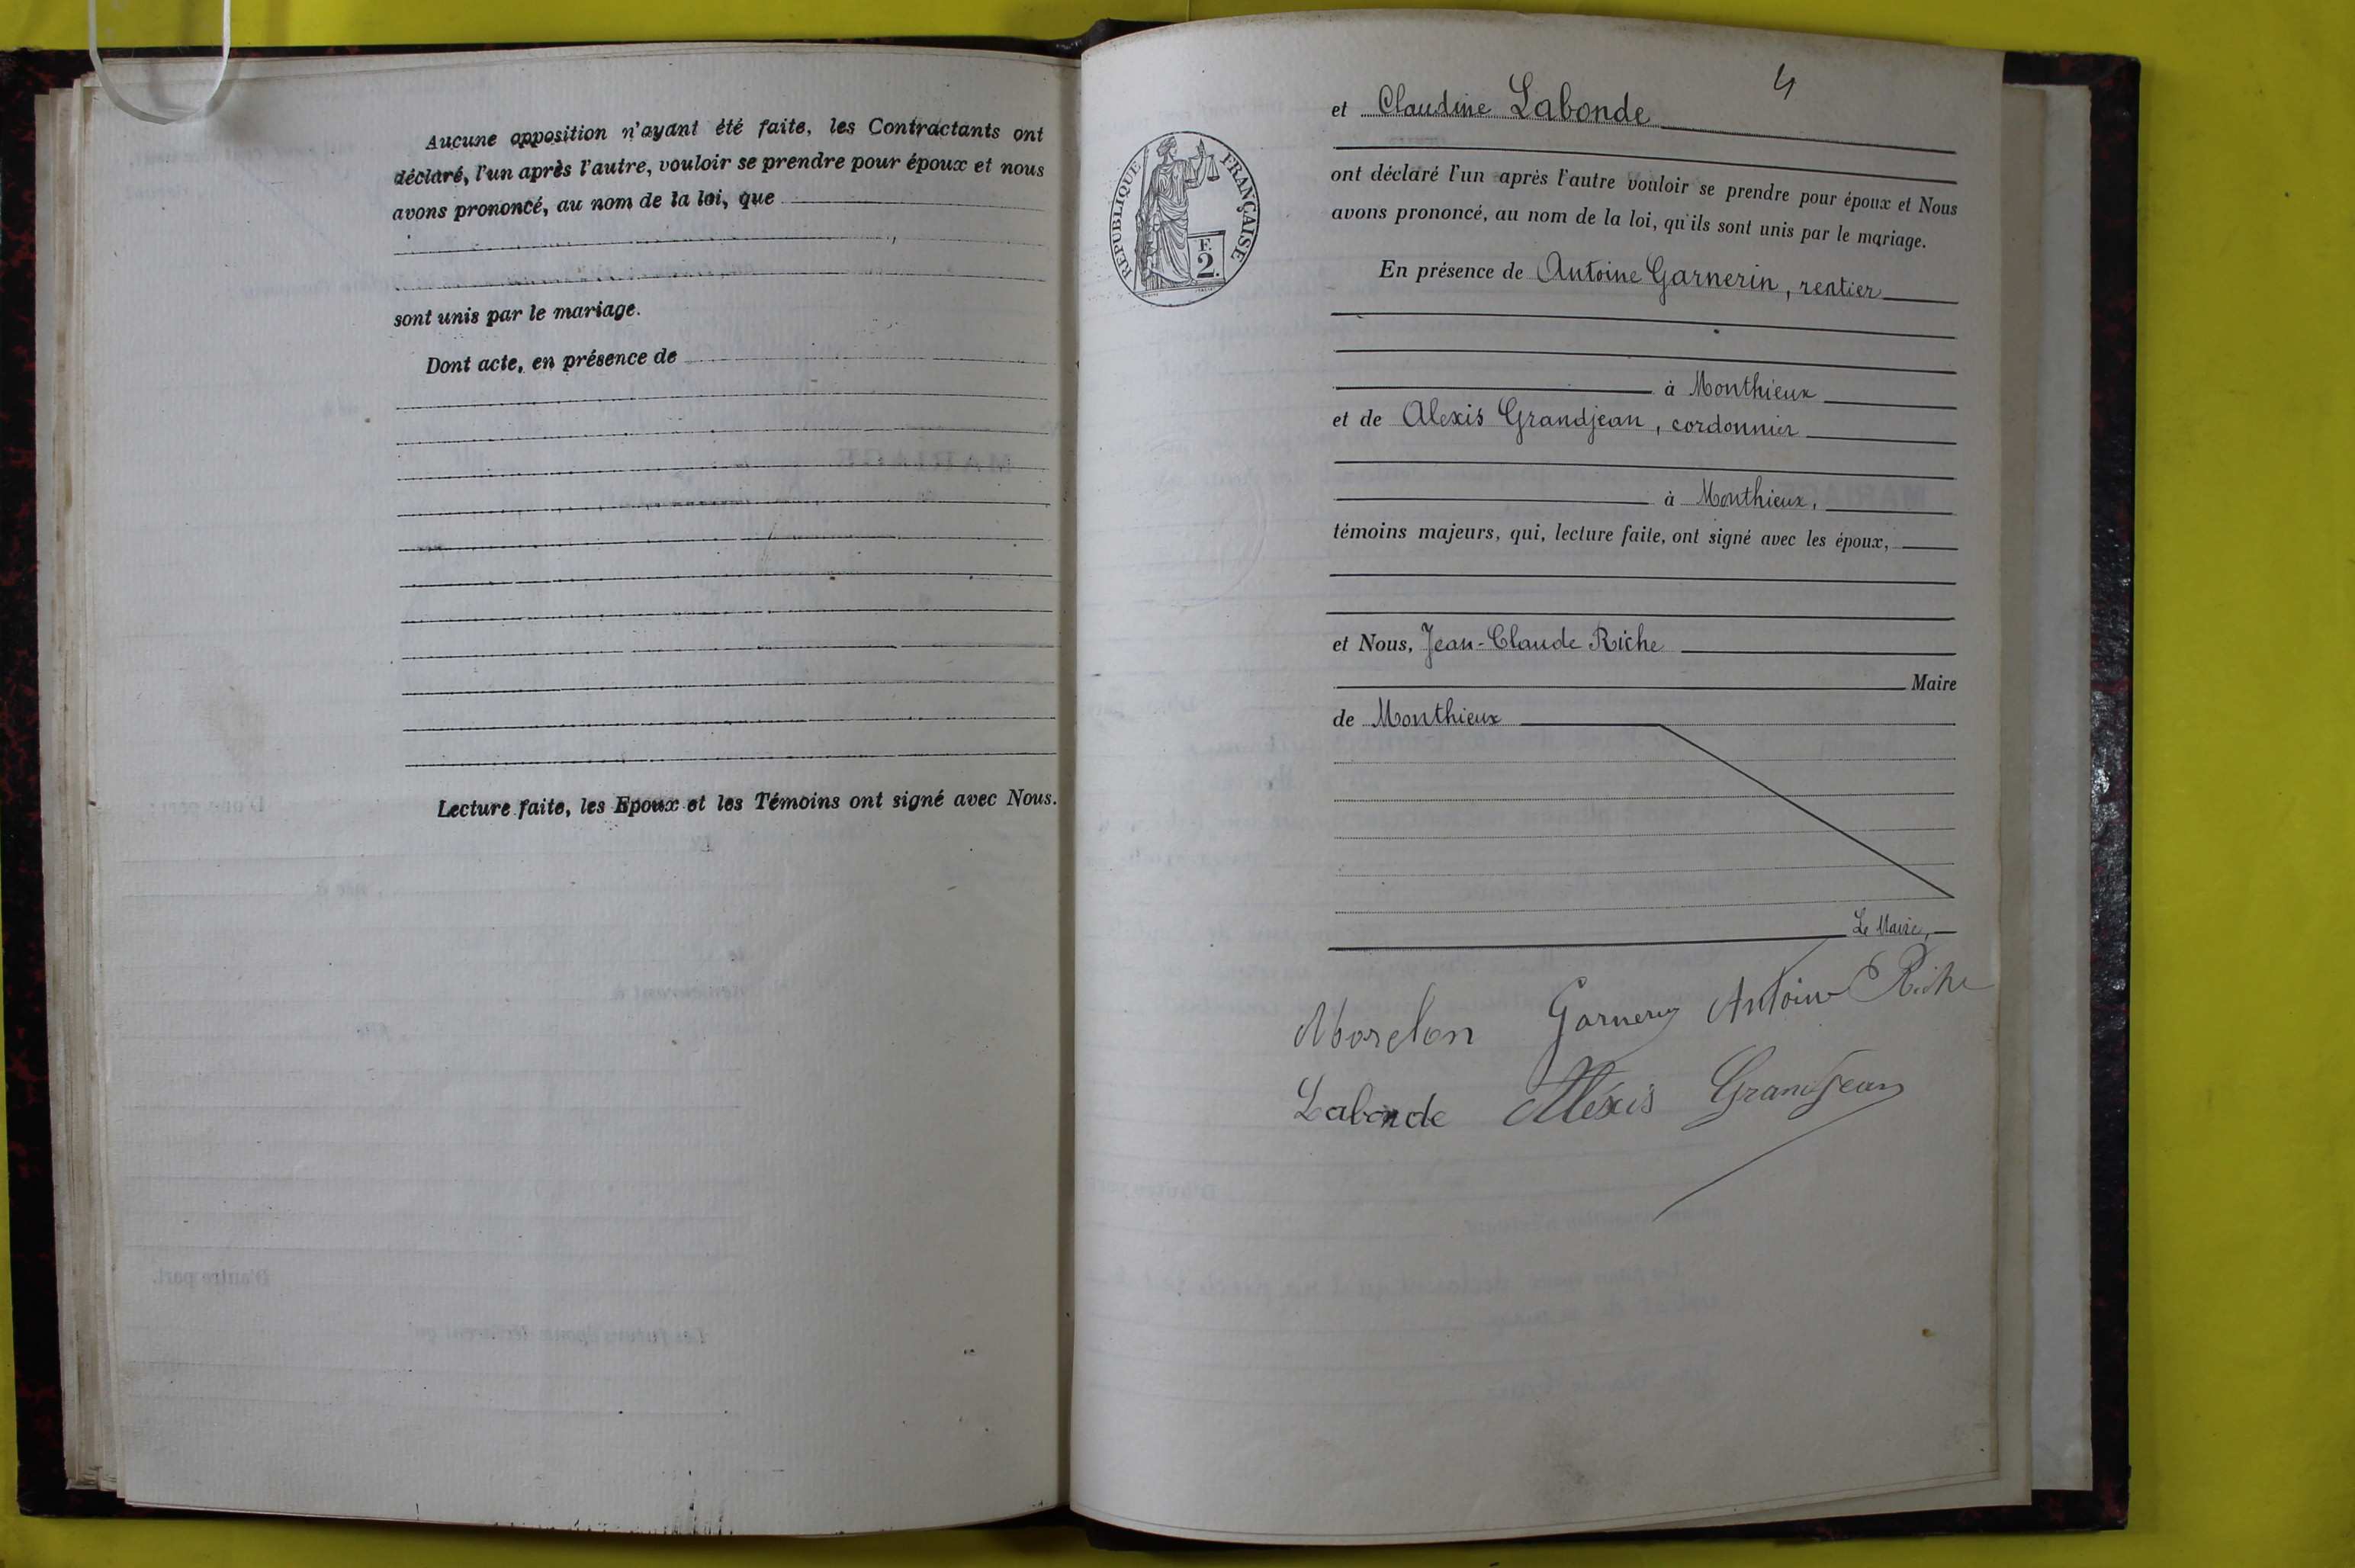 Aucune opposition n'ayant été faite, les Contractants ont
déclaré, l'un après l'autre, vouloir se prendre pour époux et nous
avons prononcé, au nom de la loi, que
sont unis par le mariage.
Dont acte, en présence de
Lecture faite, les Epoux et les Témoins ont signé avec Nous.
4
et Claudine Labonde
RÉPUBLIQUE FRANÇAISE
F.
2.
ont déclaré l'un après l'autre vouloir se prendre pour époux et Nous
avons prononcé, au nom de la loi, qu'ils sont unis par le mariage.
En présence de Antoine Garnerin, rentier
à Monthieux
et de Alexis Grandjean, cordonnier
à Monthieux,
témoins majeurs, qui, lecture faite, ont signé avec les époux,
et Nous, Jean-Claude Riche
Maire
de Monthieux
Le Maire,
Morelon Garnerin Antoine Riche
Labonde Alexis Grandjean